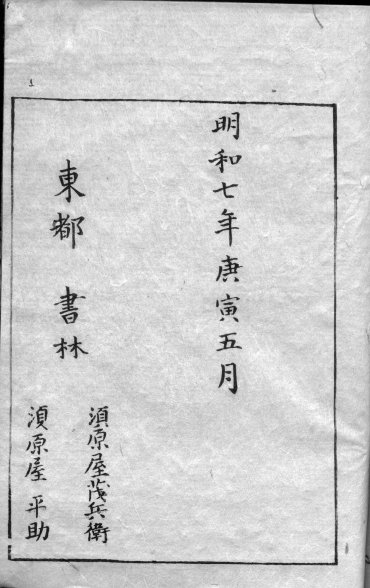 明和七年庚寅五月
東都 書林
須原屋茂兵衛
須原屋平助